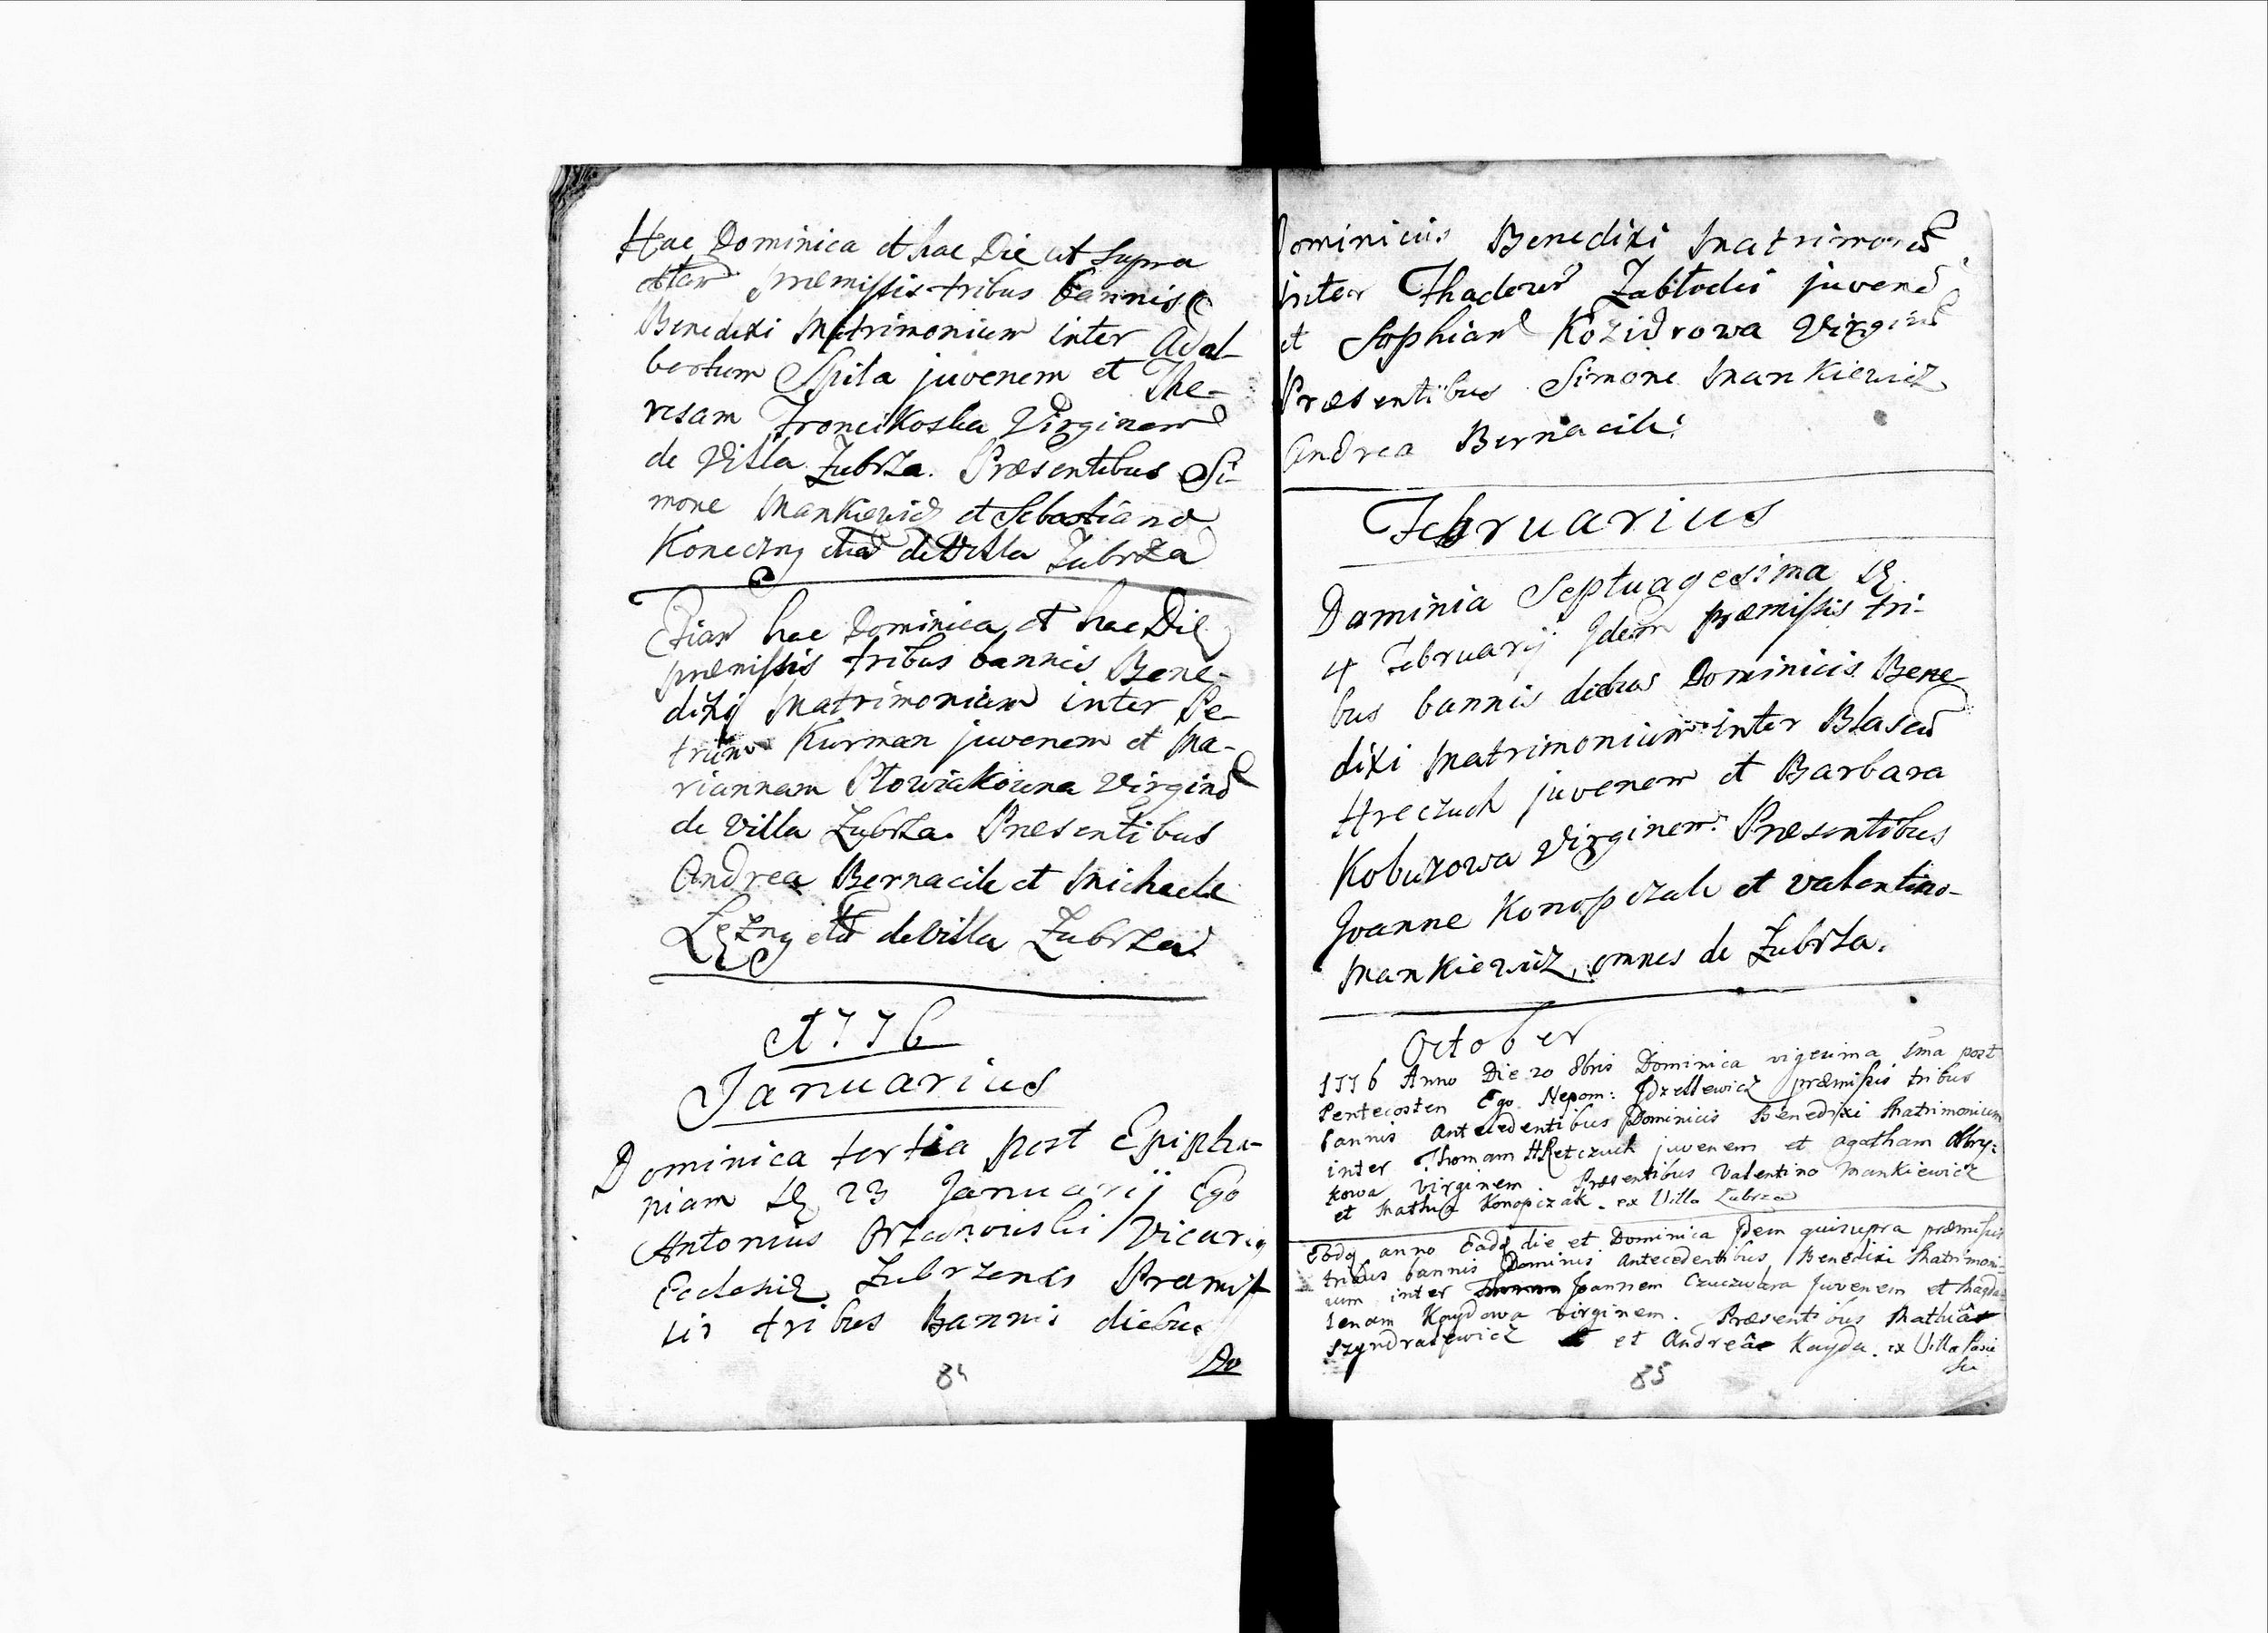 Hac Dominica et hac Die ut supra
etiam præmissis tribus bannis
Benedixi Matrimonium inter Adal-
bertum Spila juvenem et The-
resam Froncikoska Virginem
de Villa Zubrza. Præsentibus Si-
mone Mankiewicz et Sebastiano
Koneczny etiam de Villa Zubrza
Etiam hac Dominica et hac Die
præmissis tribus bannis Bene-
dixi Matrimonium inter Pe-
trum Kurman juvenem et Ma-
riannam Słowiakowna Virginem
de Villa Zubrza. Præsentibus
Andrea Bernacik et Michaele
Lęzny de Villa Zubrza
A 1776
Januarius
Dominica tertia post Epipha-
niam 23 Januarij Ego
Antonius Vicariq
Ecclesiæ Zubrzensis Præmis-
sis tribus Bannis diebus
Do
Dominicis Benedixi Matrimon
inter Thadeum Zabłocki juvenem
et Sophiam Koziorowa Virginem
Præsentibus Simone Mankiewicz
Andrea Bernacik.
Februarius
Dominia Septuagesima
4 Februarij Idem præmissis tri-
bus bannis diebus Dominicis Bene-
dixi Matrimonium inter Blaseum
Hreczuch juvenem et Barbara
Kobuzowa Virginem. Præsentibus
Joanne Konopczak et Valentino
Mankiewicz, omnes de Zubrza.
October
1776 Anno Die 20 8bris Dominica vigesima 1ma post
Pentecosten Ego Nepom: præmissis tribus
bannis Antecedentibus Dominicis Benedixi Matrimonium
inter Thomam Hretczuch juvenem et Agatham Obry:
kowa Virginem. Præsentibus Valentino Mankiewicz
et Mathia Konopczak. ex Villa Zubrza
Eodq anno Eadq die et Dominica Idem quisupra præmissis
tribus bannis Dominis Antecedentibus Benedixi Matrimoni-
um inter Joannem Czuczwara Juvenem et Magda-
lenam Kaydowa Virginem. Præsentibus Mathiâ
Szyndralewicz et Andreâ Kayda. ex Villa Pasie
ki
84
85